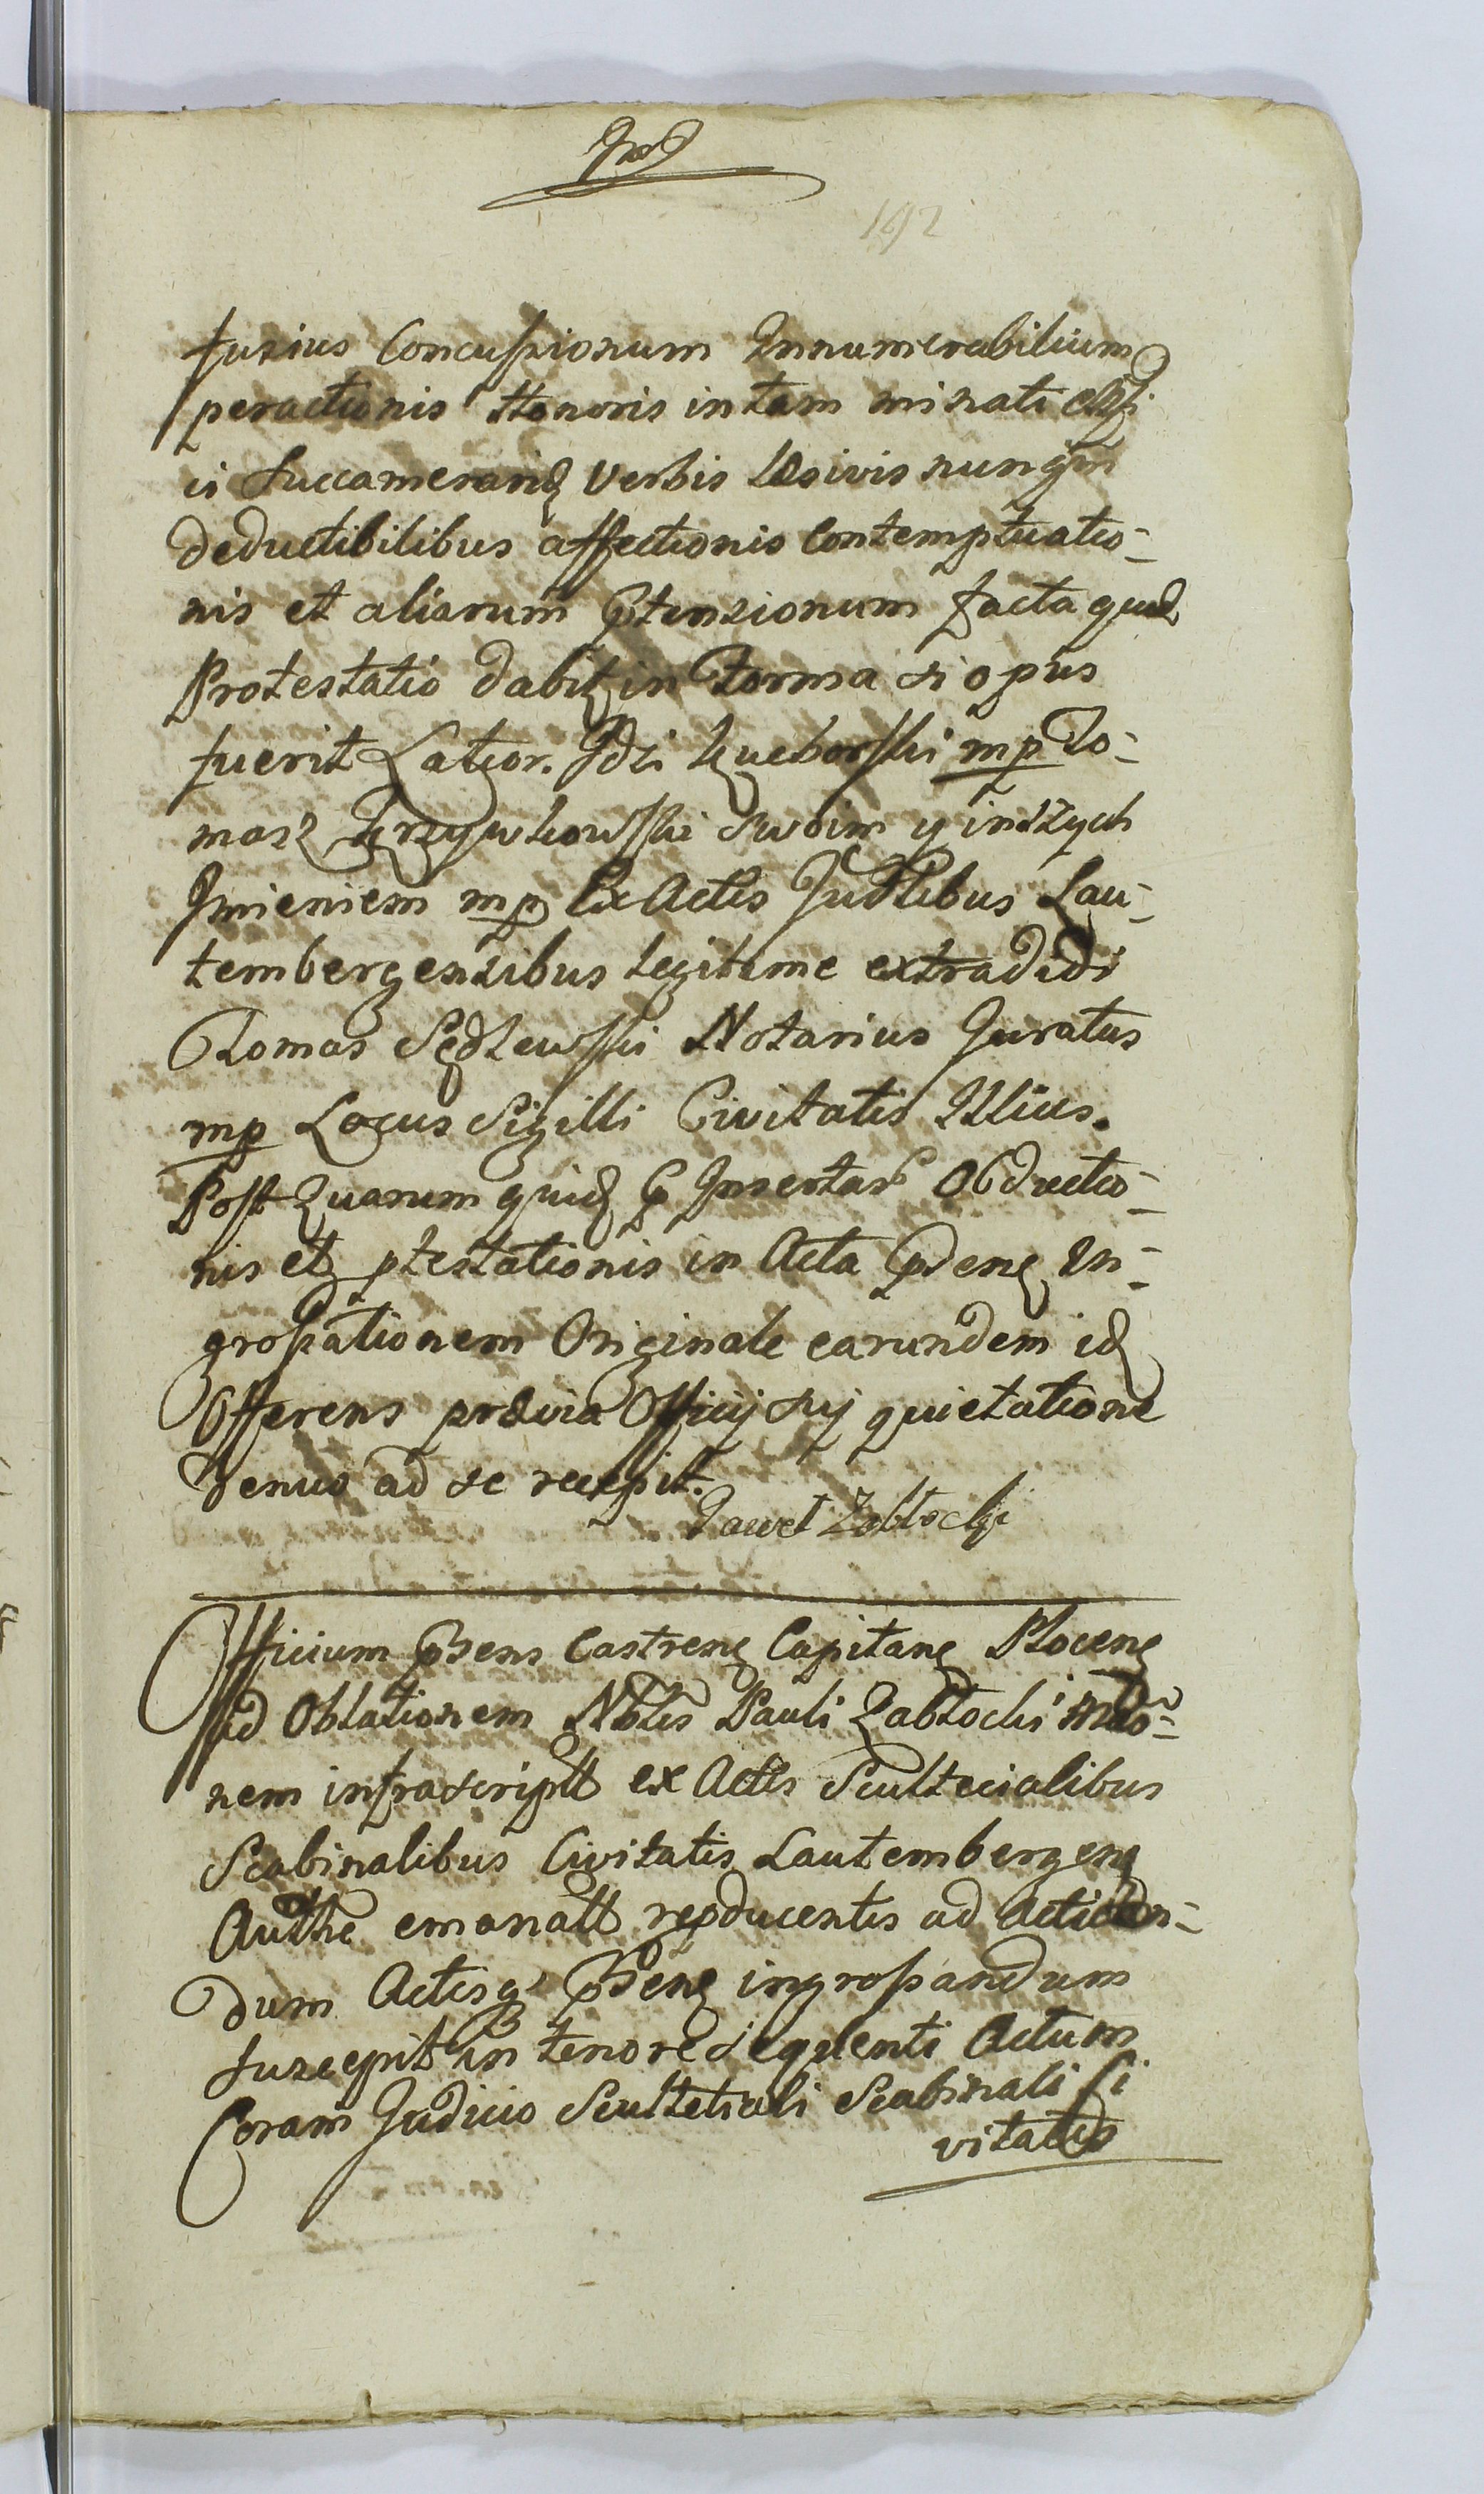 192
fusius Concussionum Innumerabilium
peractionis Honoris in tam minati
ii Succamerariq Verbis Læsivis nunqm
deductibilibus affectionis Contemptuatio-
nis et aliarum Ptensionum facta quæ
Protestatio dabit in Forma si opus
fuerit Latior. Idzi mp To-
masz Krzywkowski Swoim y inszych
Imieniem mp Ex Actis Judlibus Lau-
tembergensibus legitime extradidi
Thomas Sędzewski Notarius Juratus
mp Locus Sigilli Civitatis Illius.
Post Quarum quid P Insertar Obductio-
nis et ptestationis in Acta Pdens In-
grossationem Originale earundem id
Offerens prævia Officij sui quietatione
denuo ad se recepit.
Paweł Zabłocki
Officium Psens Castrens Capitans Plocens
Ad Oblationem Nobilis Pauli Zabłocki
nem infrascript ex Actis Scultecialibus
Scabinalibus Civitatis Lautembergens
Authe emanatt repducentis ad Actican-
dum Actisq Psens ingrossandum
suscepit in tenore sequenti Actum
Coram Judicio Scultetiali Scabinali Ci
vitatis